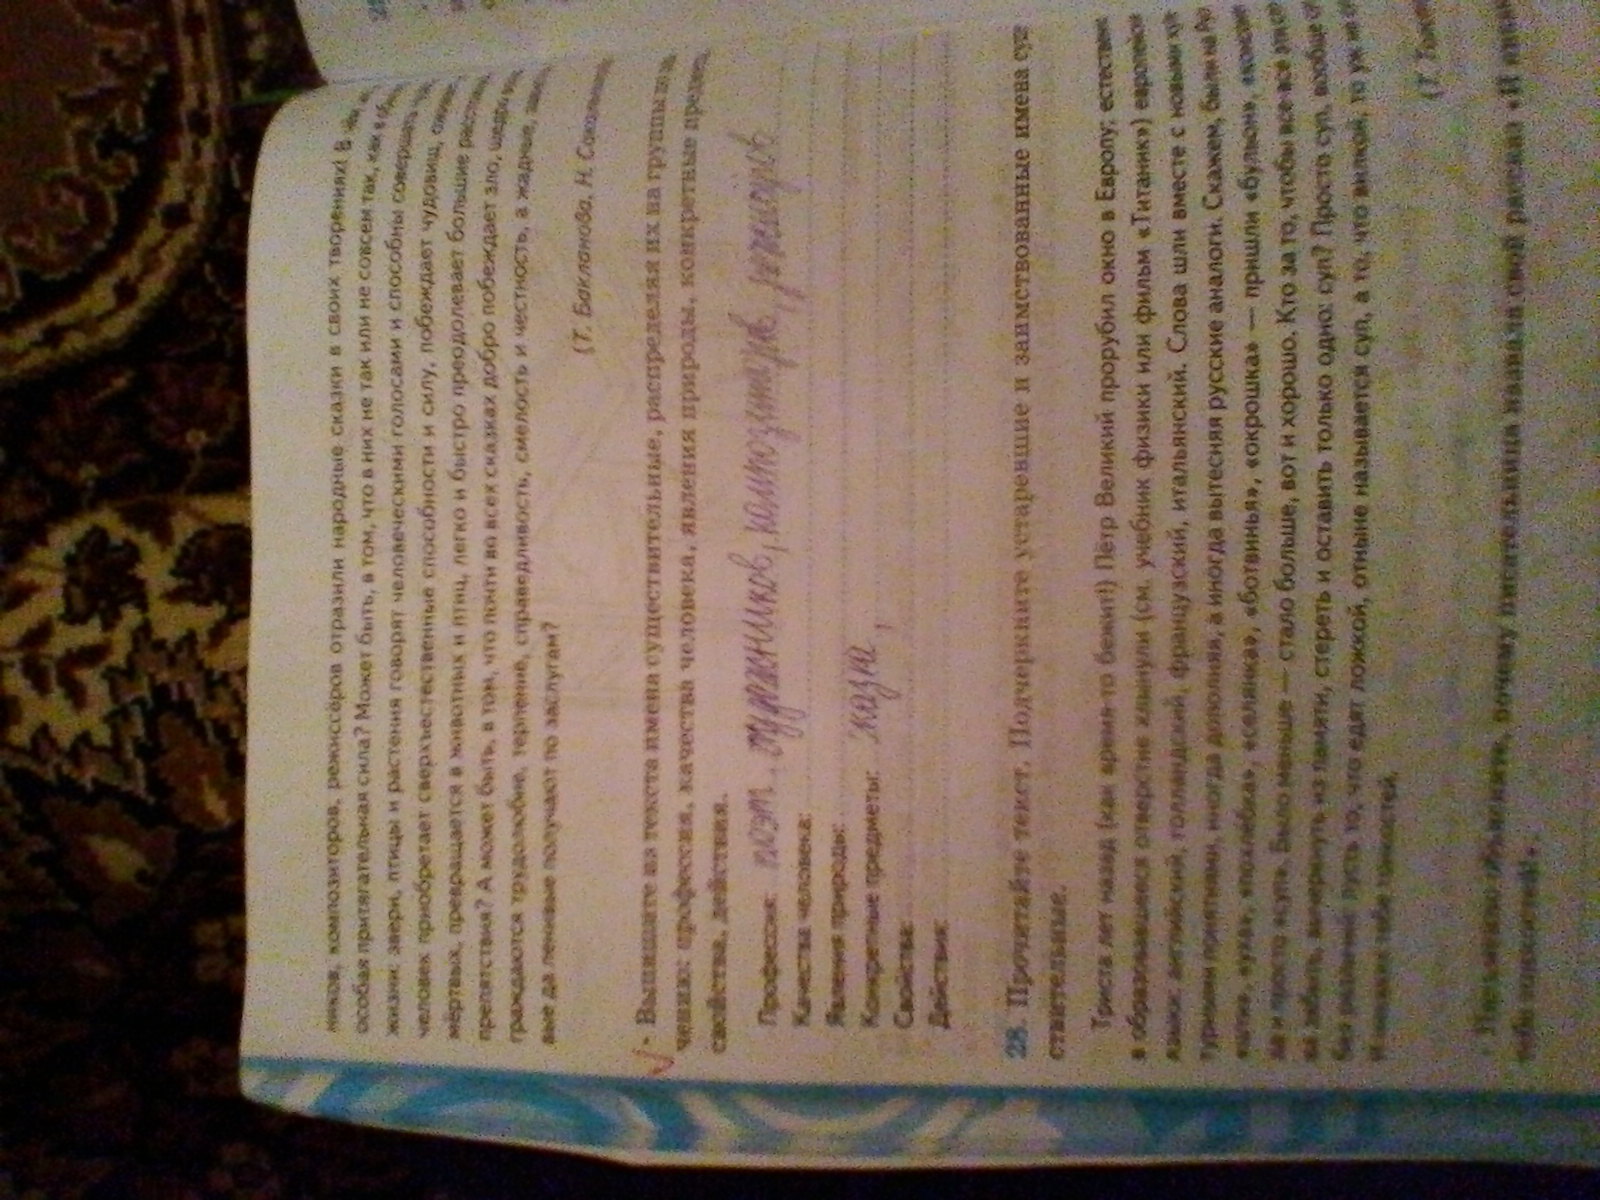 ников, композиторов, режиссёров отразили народные сказки в своих творениях! В чём их
особая притягательная сила? Может быть, в том, что в них не так или не совсем так, как в
жизни: звери, птицы и растения говорят человеческими голосами и способны совершать
человек приобретает сверхъестественные способности и силу, побеждает чудовищ,
мёртвых, превращается в животных и птиц, легко и быстро преодолевает большие
препятствия? А может быть, в том, что почти во всех сказках добро побеждает зло, щедро
граждаются трудолюбие, терпение, справедливость, смелость и честность, а жадные,
вые да ленивые получают по заслугам?
(Т. Бакланова, Н. Сокольникова)
• Выпишите из текста имена существительные, распределяя их на группы
чения: профессия, качества человека, явления природы, конкретные
свойства, действия.
Профессия: поэт. художников, композиторов, режиссёров
Качества человека:
Явления природы:
Конкретные предметы: сказки,
Свойства:
Действия:
28. Прочитайте текст. Подчеркните устаревшие и заимствованные имена сущ
ствительные.
Триста лет назад (как время-то бежит!) Пётр Великий прорубил окно в Европу;
в образовавшееся отверстие хлынули (см. учебник физики или фильм «Титаник»)
языки: английский, голландский, французский, итальянский. Слова шли вместе с новыми
турными приятиями, иногда дополняя, а иногда вытесняя русские аналоги. Скажем, были на
«щи», «уха», «похлёбка», «селянка», «ботвинья», «окрошка» — пришли «бульон»,
да и просто «суп». Было меньше — стало больше, вот и хорошо. Кто за то, чтобы все-все
забыть, вычеркнуть из памяти, стереть и оставить только одно: суп? Просто суп, вообще
без различия? Пусть то, что едят ложкой, отныне называется суп, а то, что вилкой,
И никаких тебе тонкостей.
(Т. Толстая)
почему писательница назвала свой рассказ